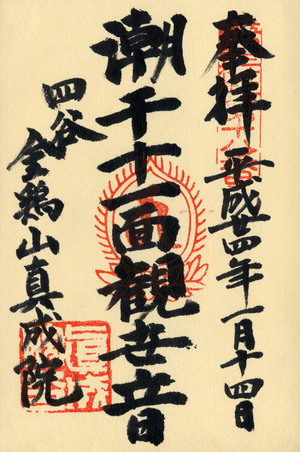 奉拝
平成廿四年一月十四日
潮干十一面観世音
四谷
金鶏山真成院